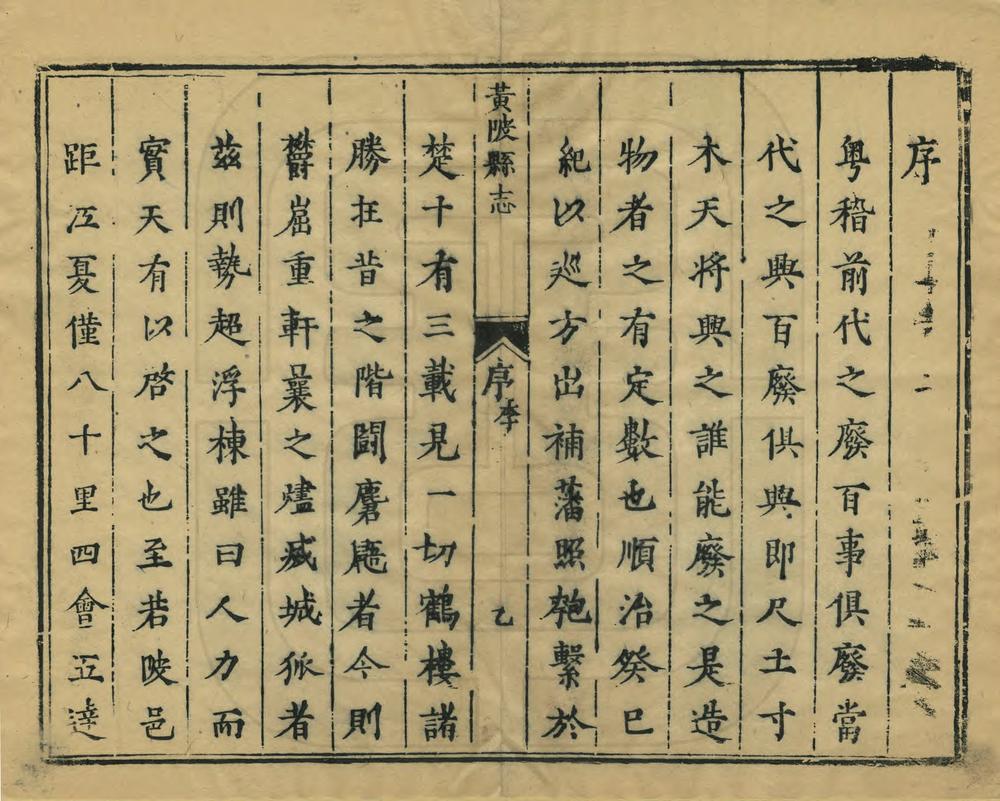 序二
粤稽前代之廢百事俱廢當
代之興百廢俱興即尺土寸
木天將興之誰能廢之是造
物者之有定數也順治癸巳
紀以巡方出補藩照匏繫於
黃陂縣志 序李 乙
楚十有三載見一切鶴樓諸
勝在昔之階鬪麏鼯者今則
欝崛重軒曩之燼烕城狐者
茲則勢超浮棟雖曰人力而
實天有以啓之也至若陂邑
距江夏僅八十里四會五達